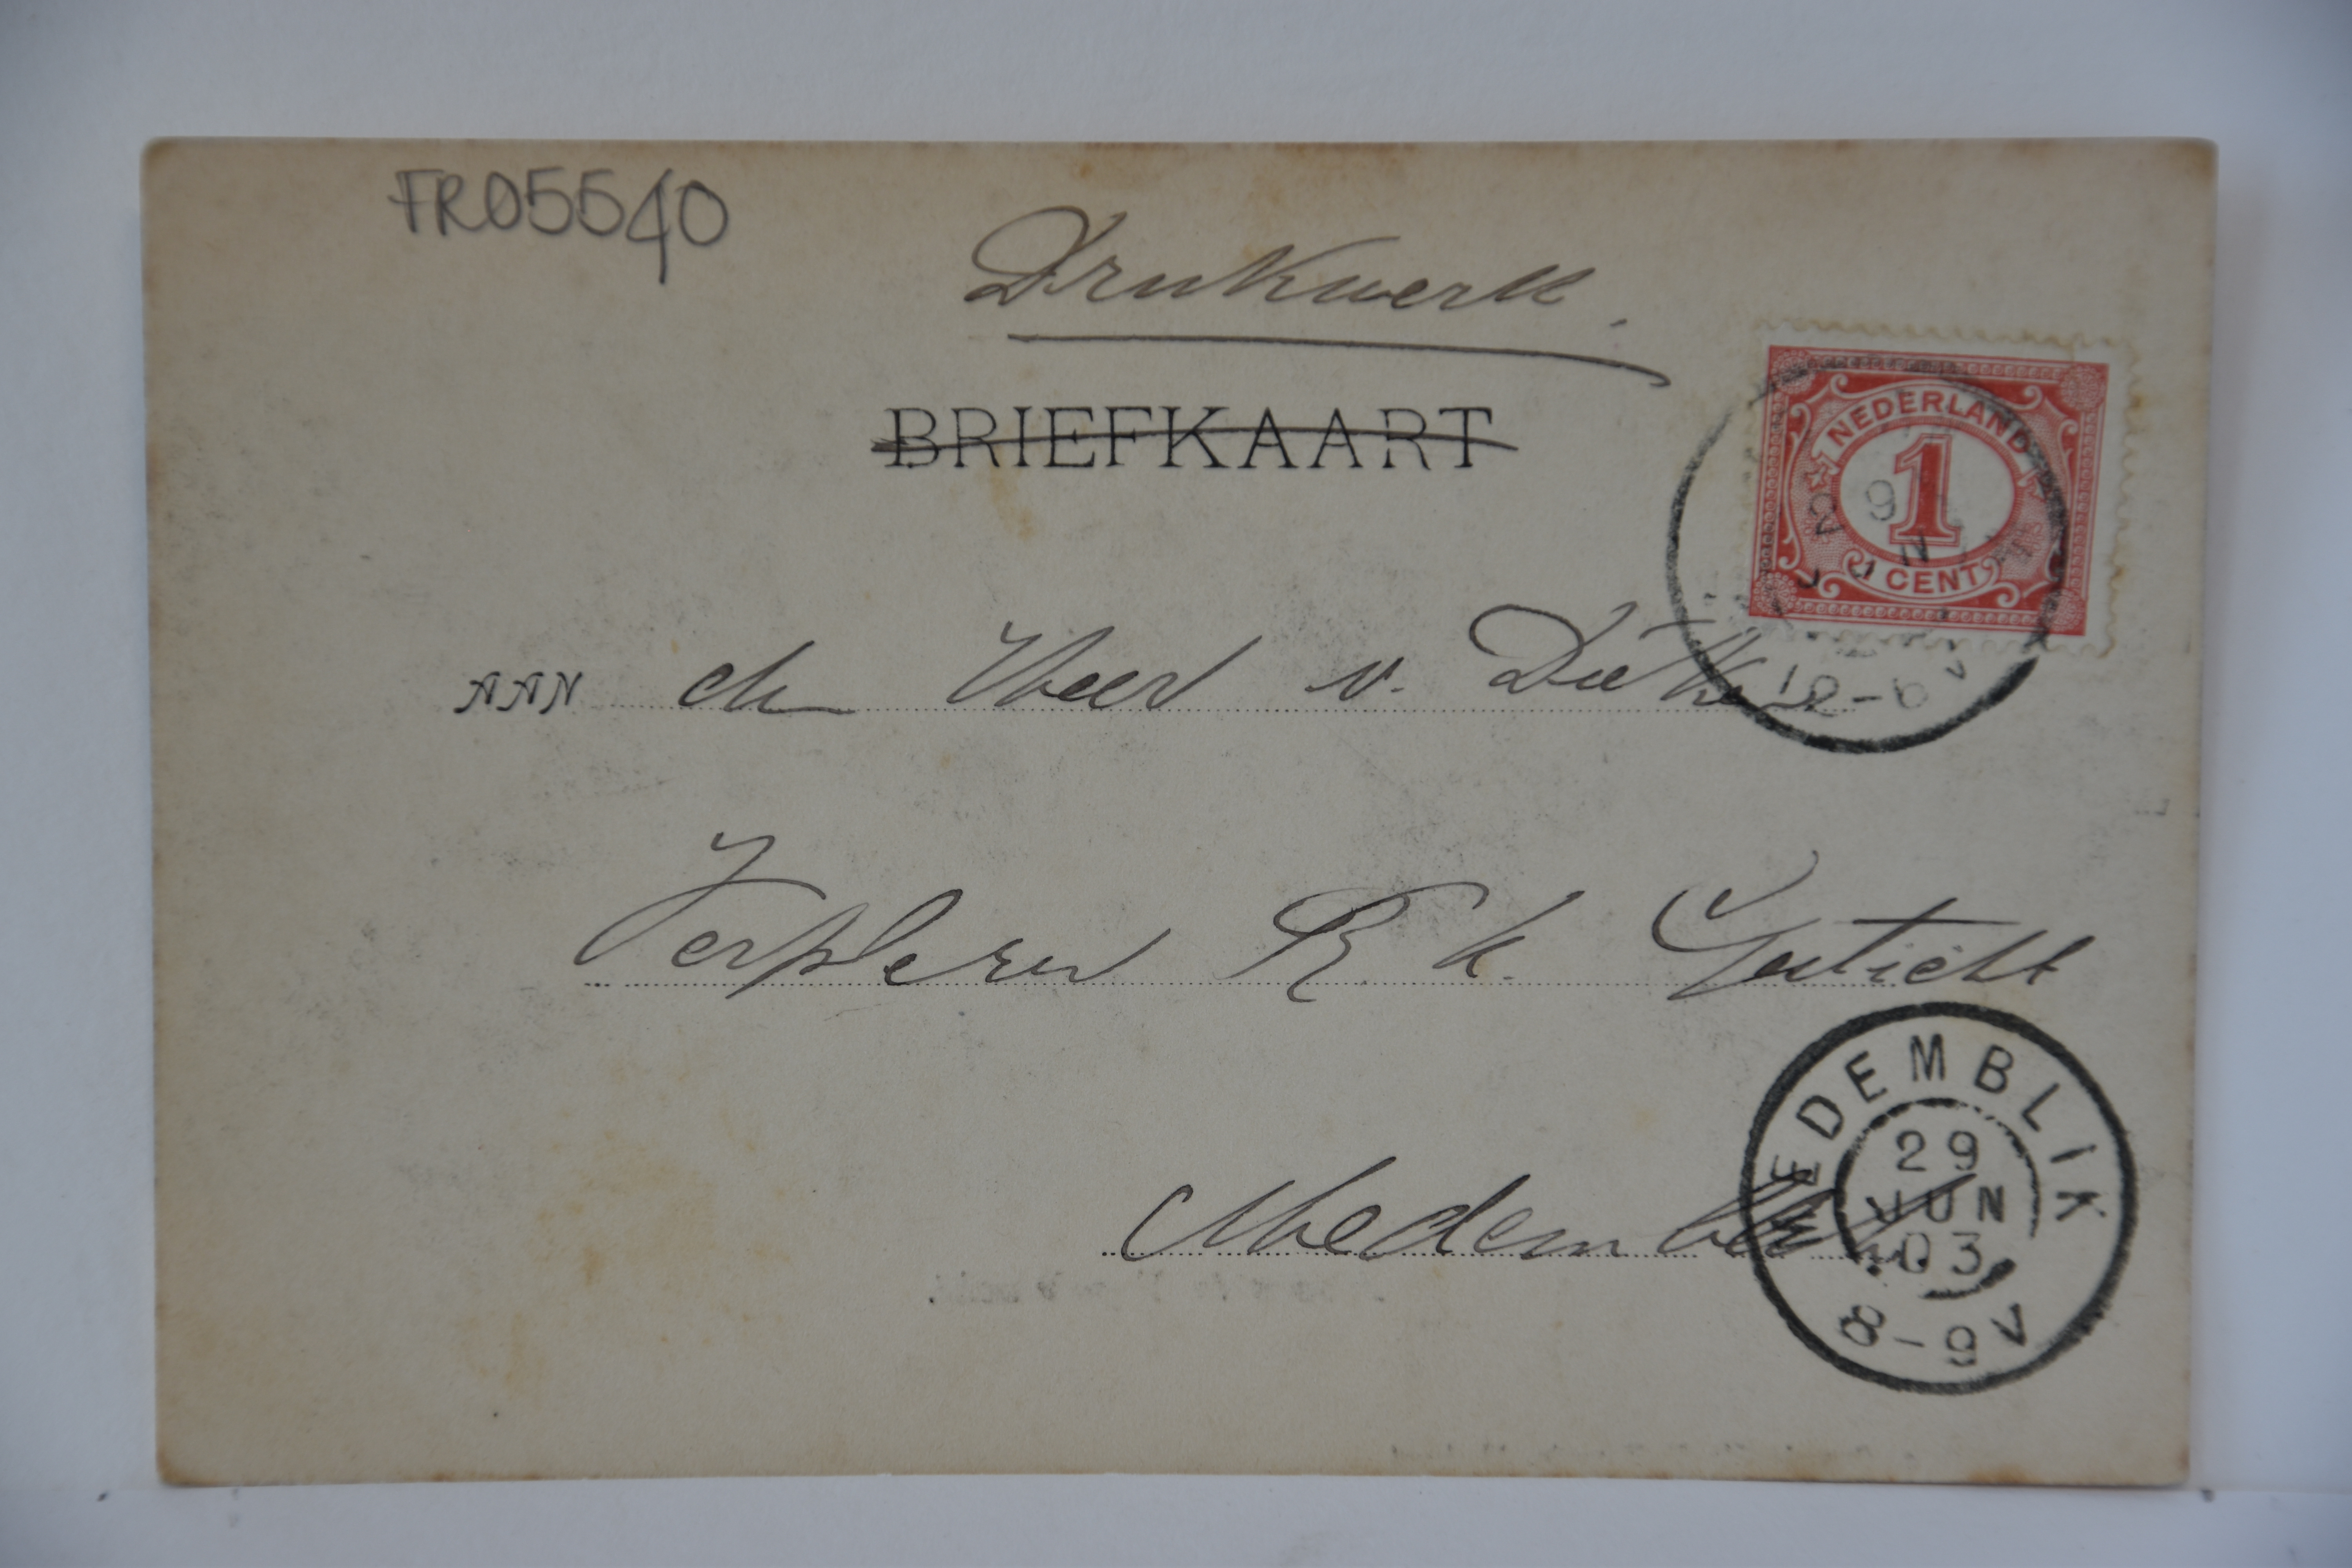 FR05540
Drukwerk.
BRIEFKAART
NEDERLAND
1
1 CENT
29
JUN
12-6V
AAN den Heer v. Dieth
Verpleger R. k. Gesticht
Medemblik
MEDEMBLIK
29
JUN
03
8-9V